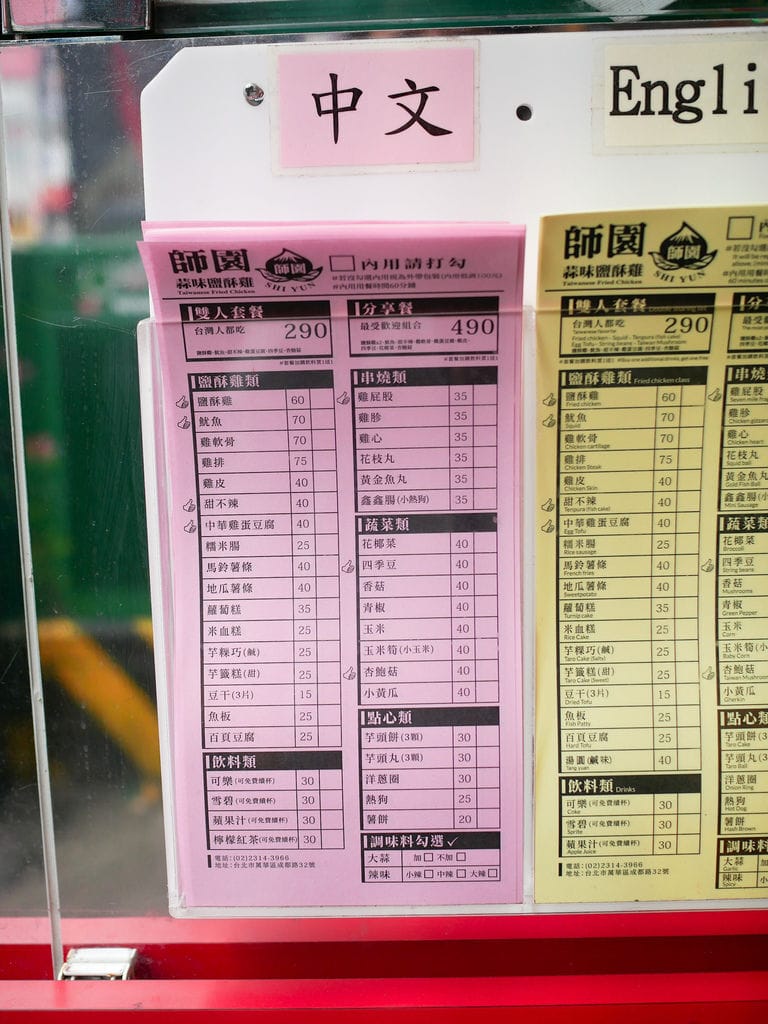 中文
Engli
師園
蒜味鹽酥雞
Taiwanese Fried Chicken
師園
SHI YUN
內用請打勾
#若沒勾選內用視為外帶包裝(內用低消100元)
#內用用餐時間60分鐘
雙人套餐
台灣人都吃 290
分享餐
最受歡迎組合 490
鹽酥雞類
鹽酥雞 60
魷魚 70
雞軟骨 70
雞排 75
雞皮 40
甜不辣 40
中華雞蛋豆腐 40
糯米腸 25
馬鈴薯條 40
地瓜薯條 40
蘿蔔糕 35
米血糕 25
芋粿巧(鹹) 25
芋籤糕(甜) 25
豆干(3片) 15
魚板 25
百頁豆腐 25
飲料類
可樂(可免費續杯) 30
雪碧(可免費續杯) 30
蘋果汁(可免費續杯) 30
檸檬紅茶(可免費續杯) 30
電話:(02)2314-3966
地址:台北市萬華區成都路32號
串燒類
雞屁股 35
雞胗 35
雞心 35
花枝丸 35
黃金魚丸 35
鑫鑫腸(小熱狗) 35
蔬菜類
花椰菜 40
四季豆 40
香菇 40
青椒 40
玉米 40
玉米筍(小玉米) 40
杏鮑菇 40
小黃瓜 40
點心類
芋頭餅(3顆) 30
芋頭丸(3顆) 30
洋蔥圈 30
熱狗 25
薯餅 20
調味料勾選✓
大蒜 加□ 不加□
辣味 小辣□ 中辣□ 大辣□
師園
蒜味鹽酥雞
Taiwanese Fried Chicken
師園
SHI YUN
雙人套餐
台灣人都吃 290
Taiwanese favorite
Fried chicken - Squid - Tenpura (fish cake)
Egg Tofu - String beans - Taiwan Mushroom
鹽酥雞類 Fried chicken class
鹽酥雞 60
Fried chicken
魷魚 70
Squid
雞軟骨 70
Chicken cartilage
雞排 75
Chicken Steak
雞皮 40
Chicken Skin
甜不辣 40
Tenpura (fish cake)
中華雞蛋豆腐 40
Egg Tofu
糯米腸 25
Rice sausage
馬鈴薯條 40
French fries
地瓜薯條 40
Sweetpotato
蘿蔔糕 35
Turnip cake
米血糕 25
Rice Cake
芋粿巧(鹹) 25
Taro Cake (Salty)
芋籤糕(甜) 25
Taro Cake (Sweet)
豆干(3片) 15
Dried Tofu
魚板 25
Fish Patty
百頁豆腐 25
Hard Tofu
湯圓(鹹味) 40
Tang yuan
飲料類 Drinks
可樂(可免費續杯) 30
Coke
雪碧(可免費續杯) 30
Sprite
蘋果汁(可免費續杯) 30
Apple Juice
電話:(02)2314-3966
地址:台北市萬華區成都路32號
串燒
雞屁股
雞胗
雞心
Chicken heart
花枝丸
Squid ball
黃金魚丸
Gold Fish Ball
鑫鑫腸
Mini Sausage
蔬菜類
花椰菜
Broccoli
四季豆
String beans
香菇
Mushrooms
青椒
Green Pepper
玉米
Corn
玉米筍(小
Baby Corn
杏鮑菇
Taiwan Mushroo
小黃瓜
Gherkin
點心類
芋頭餅(3
Taro Cake
芋頭丸(3
Taro Ball
洋蔥圈
Onion Ring
熱狗
Hot Dog
薯餅
Hash Brown
調味料
大蒜
Garlic
辣味
Spicy